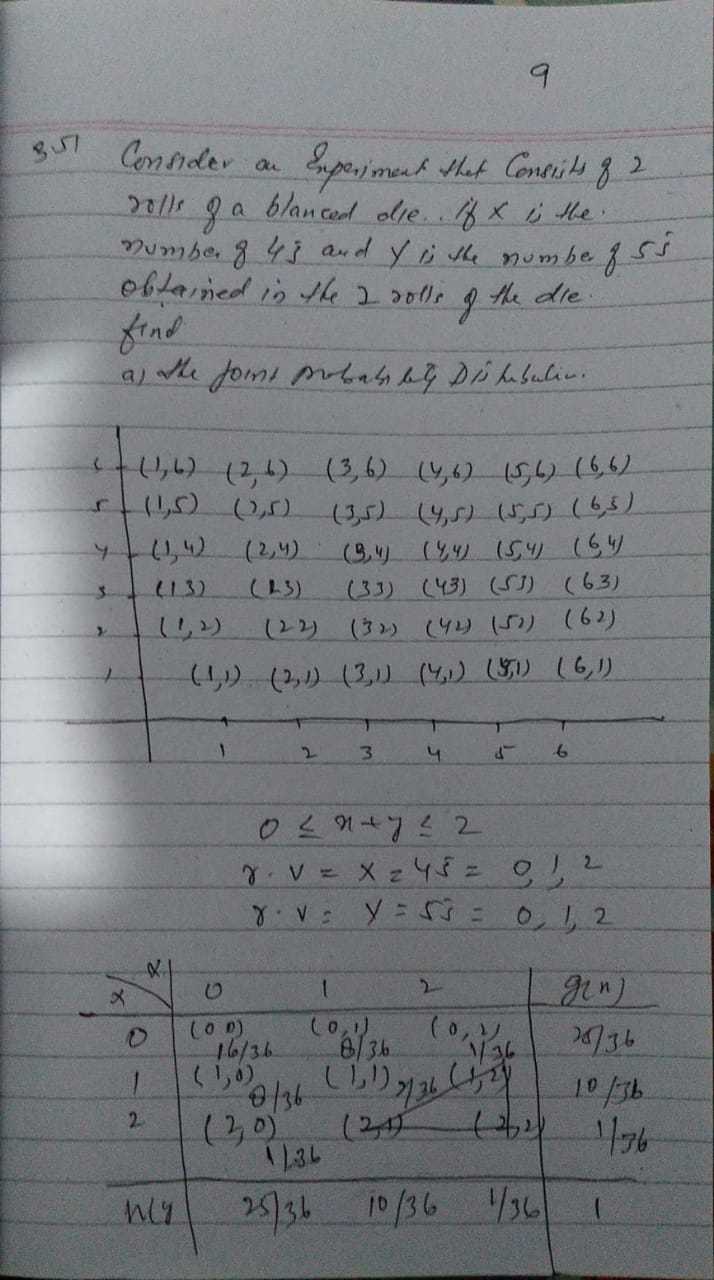 9
351 Consider an Experiment that Consists of 2
rolls of a blanced die.. if X is the.
number of 4s and Y is the number of 5s
obtained in the 2 rolls of the die.
find
a) the joint probability Distribution.
6 (1,6) (2,6) (3,6) (4,6) (5,6) (6,6)
5 (1,5) (2,5) (3,5) (4,5) (5,5) (6,5)
4 (1,4) (2,4) (3,4) (4,4) (5,4) (6,4)
3 (13) (23) (33) (43) (53) (63)
2 (1,2) (22) (32) (42) (52) (62)
1 (1,1) (2,1) (3,1) (4,1) (5,1) (6,1)
1 2 3 4 5 6
0 ≤ x+y ≤ 2
r.v = X = 4s = 0, 1, 2
r.v = Y = 5s = 0, 1, 2
x 0 1 2 g(x)
0 (00) (0,1) (0,2) 25/36
16/36 8/36 1/36
1 (1,0) (1,1) 2/36 (1,2) 10/36
8/36
2 (2,0) (2,1) (2,2) 1/36
1/36
h(y 25/36 10/36 1/36 1